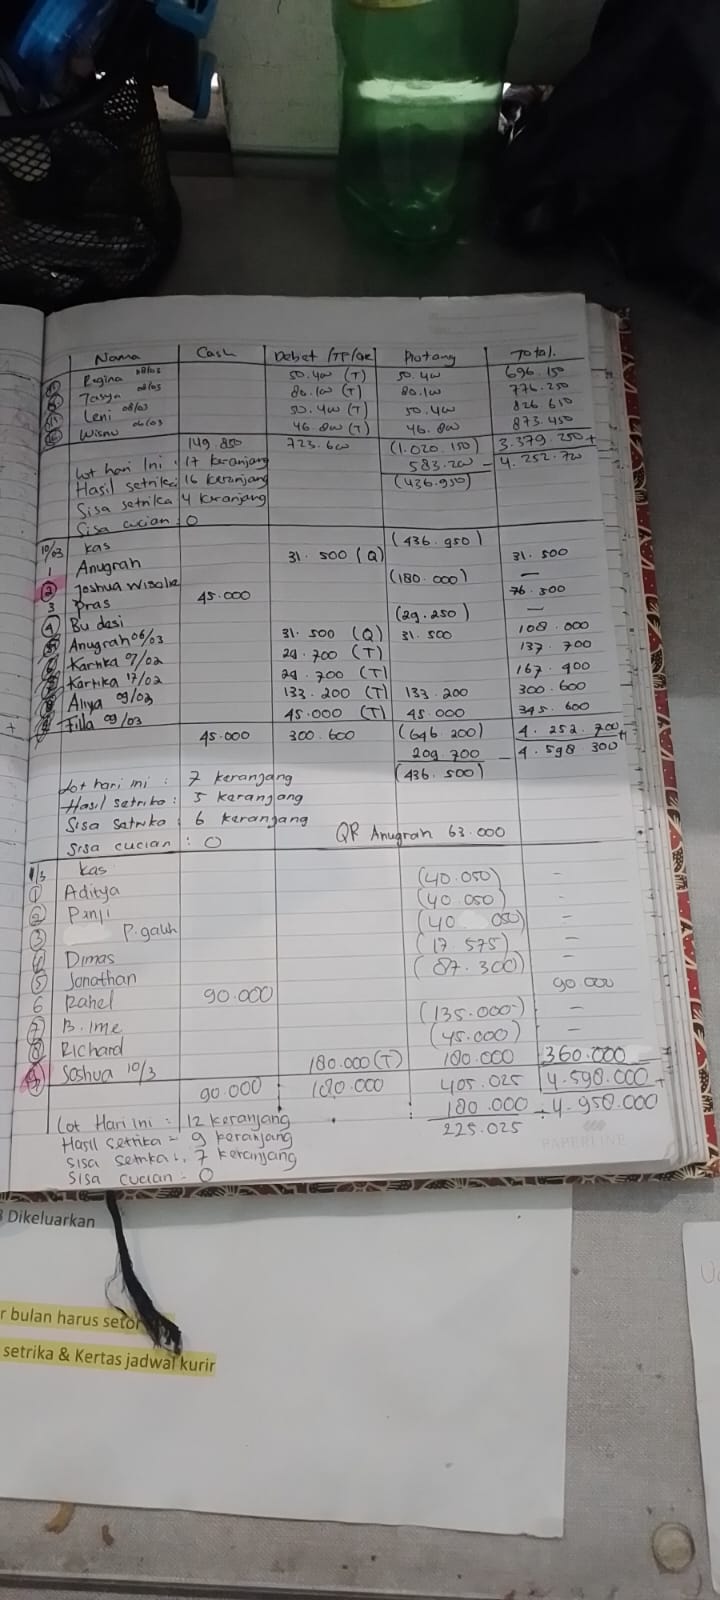 Nama Cash Debet /TF/QR Piutang Total.
Regina 08/03 50.400 (T) 50.400 696.150
Tasya 08/03 80.100 (T) 80.100 776.250
Leni 08/03 50.400 (T) 50.400 826.650
Wisnu 06/03 46.800 (T) 46.800 873.450
149.850 723.600 (1.020.150) 3.379.250 +
Lot hari Ini : 17 keranjang 583.200 - 4.252.700
Hasil setrika : 16 keranjang (436.950)
Sisa setrika 4 keranjang
Sisa cucian : 0
10/03 kas (436.950)
1 Anugrah 31.500 (Q) 31.500
2 Joshua (180.000) —
3 Pras 45.000 76.500
4 Bu desi (29.250) —
Anugrah 06/03 31.500 (Q) 31.500 108.000
Kartika 07/02 29.700 (T) 137.700
Kartika 17/02 29.700 (T) 167.400
Aliya 09/03 133.200 (T) 133.200 300.600
Filla 09/03 45.000 (T) 45.000 345.600
45.000 300.600 (646.200) 4.252.700 +
209.700 - 4.598.300
Lot hari ini : 7 keranjang (436.500)
Hasil setrika : 5 keranjang
Sisa setrika : 6 keranjang
Sisa cucian : 0 QR Anugrah 63.000
kas
1 Aditya (40.050) -
2 Panji (40.050) -
3 P.galih (40 050) -
4 Dimas (17.575) -
5 Jonathan (87.300) -
6 Rahel 90.000 90.000
7 B. Ime (135.000) -
8 Richard (45.000) -
9 Soshua 10/3 180.000 (T) 180.000 360.000
90.000 180.000 405.025 4.598.000 +
Lot Hari Ini : 12 keranjang 180.000 : 4.958.000
Hasil Setrika = 9 keranjang 225.025
Sisa Setrika : 7 keranjang
Sisa Cucian : 0
PAPERLINE
Dikeluarkan
r bulan harus setor
setrika & Kertas jadwal kurir